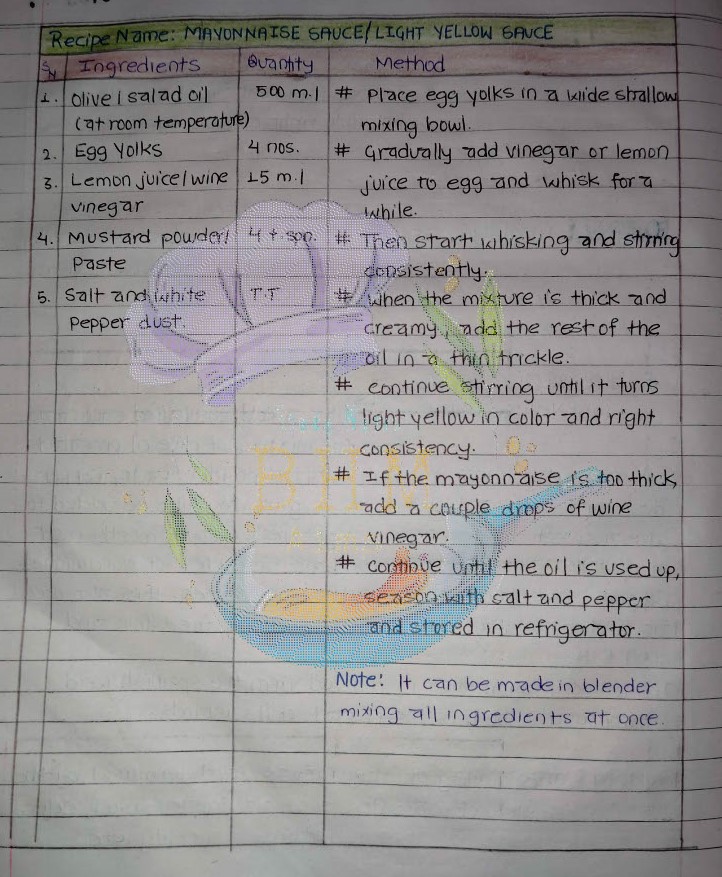 Recipe Name: MAYONNAISE SAUCE/LIGHT YELLOW SAUCE
S.N Ingredients Quantity Method
1. Olive/salad oil 500 m.l # Place egg yolks in a wide shallow
(at room temperature) mixing bowl.
2. Egg Yolks 4 nos. # Gradually add vinegar or lemon
3. Lemon juice/wine 15 m.l juice to egg and whisk for a
vinegar while.
4. Mustard powder/ 4 t spn. # Then start whisking and stirring
Paste consistently.
5. Salt and white T.T # When the mixture is thick and
Pepper dust. creamy, add the rest of the
oil in a thin trickle.
# continue stirring until it turns
light yellow in color and right
consistency.
BHM
# If the mayonnaise is too thick,
add a couple drops of wine
vinegar.
# continue until the oil is used up,
season with salt and pepper
and stored in refrigerator.
Note: It can be made in blender
mixing all ingredients at once.